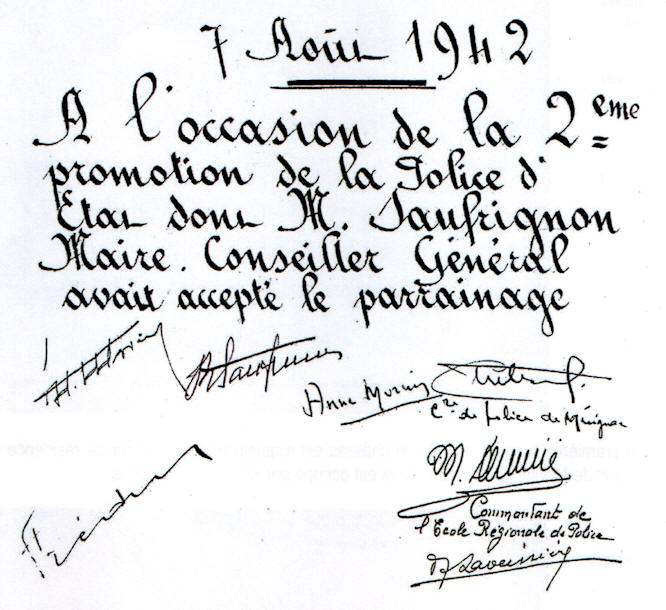 7 Août 1942
A l'occasion de la 2ème
promotion de la Police d'
Etat dont M. Saufrignon
Maire. Conseiller Général
avait accepté le parrainage
Anne
Cre de police de Mérignac
M.
Commandant de
l'Ecole Régionale de Police